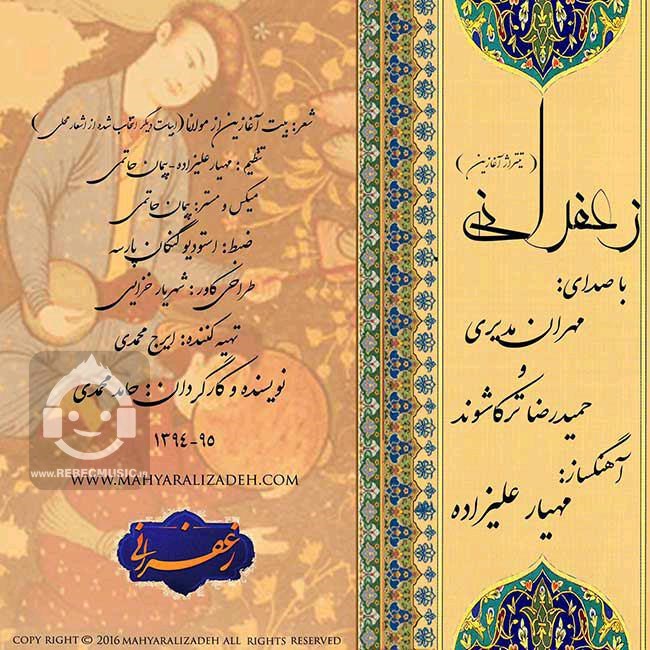 (تیتراژ آغازین)
زعفرانی
با صدای:
مهران مدیری
و
حمیدرضا ترکاشوند
آهنگساز:
مهیار علیزاده
شعر: بیت آغازین از مولانا (ابیات دیگر انتخاب شده از اشعار محلی)
تنظیم: مهیار علیزاده - پیمان حاتمی
میکس و مستر: پیمان حاتمی
ضبط: استودیو گنگان پارسه
طراحی کاور: شهریار خزایی
تهیه کننده: ایرج محمدی
نویسنده و کارگردان: حامد محمدی
۱۳۹۴-۹۵
WWW.REBECMUSIC.IR
WWW.MAHYARALIZADEH.COM
زعفرانی
COPY RIGHT © 2016 MAHYARALIZADEH ALL RIGHTS RESERVED